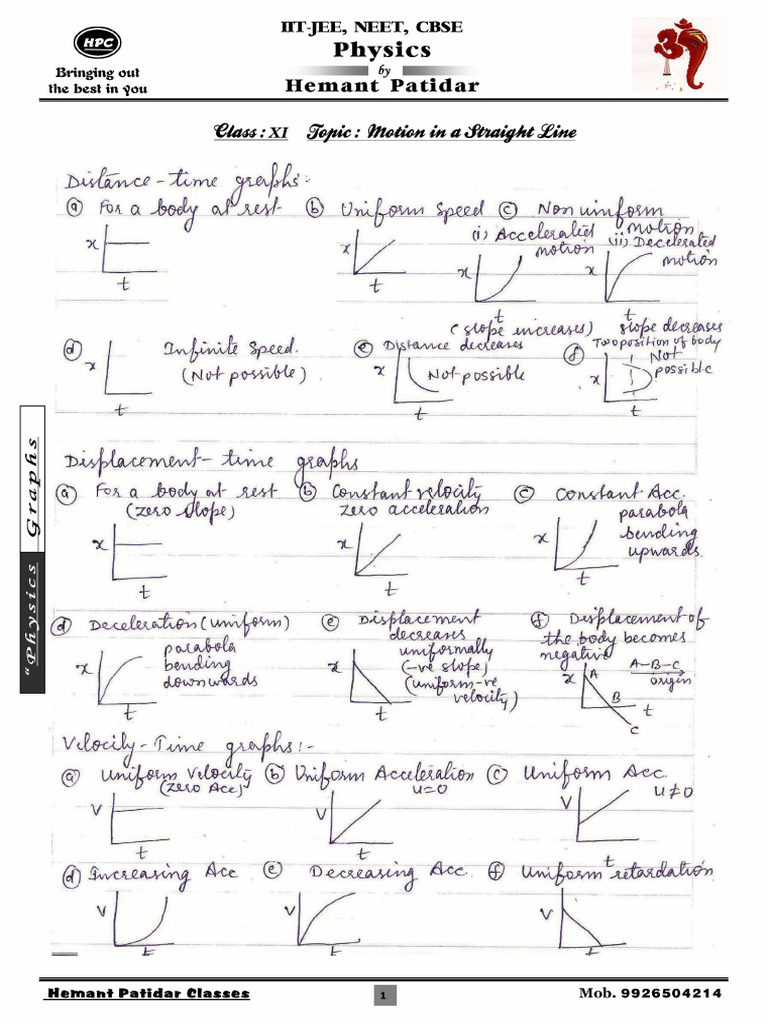 HPC
Bringing out
the best in you
IIT-JEE, NEET, CBSE
Physics
by
Hemant Patidar
Class : XI Topic : Motion in a Straight Line
Distance-time graphs:-
(a) For a body at rest
x
t
(b) Uniform Speed
x
t
(c) Non uniform
motion
(i) Accelerated
motion
x
t
(slope increases)
(ii) Decelerated
motion
x
t
slope decreases
(d) Infinite Speed.
(Not possible)
x
t
(e) Distance decreases
x
Not possible
t
(f) Two position of body
Not
possible
x
t
Displacement-time graphs
(a) For a body at rest
(zero slope)
x
t
(b) Constant velocity
zero acceleration
x
t
(c) Constant Acc.
parabola
bending
upwards.
x
t
(d) Deceleration (uniform)
parabola
bending
downwards
x
t
(e) Displacement
decreases
uniformally
(-ve slope)
(uniform -ve
velocity)
x
t
(f) Displacement of
the body becomes
negative
A-B-C
origin
x
A
B
C
t
Velocity-Time graphs:-
(a) Uniform Velocity
(Zero Acc)
V
t
(b) Uniform Acceleration
u=0
V
t
(c) Uniform Acc.
u≠0
V
t
(d) Increasing Acc
V
t
(e) Decreasing Acc.
V
t
(f) Uniform retardation
V
t
"Physics Graphs
Hemant Patidar Classes
1
Mob. 9926504214